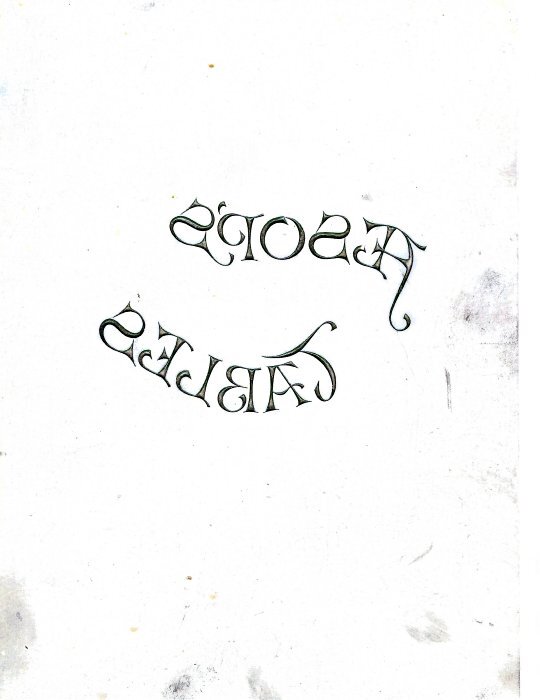 ÆSOP'S
FABLES